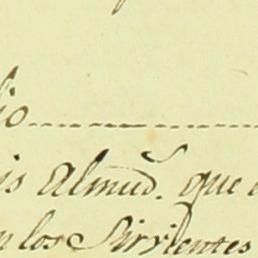 io
is Almud.s que
n los Sirvientes